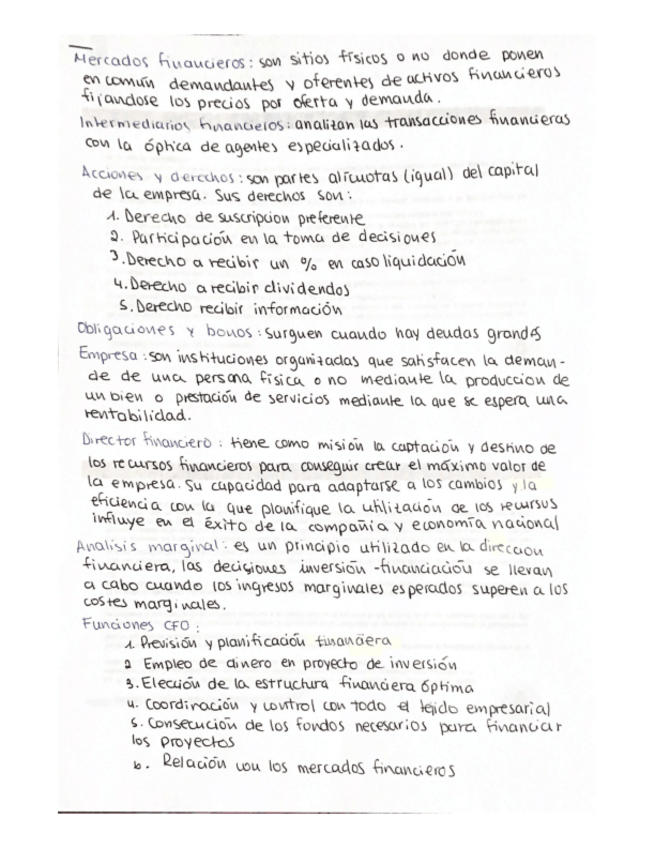 Mercados financieros: son sitios físicos o no donde ponen
en común demandantes y oferentes de activos financieros
fijandose los precios por oferta y demanda.
Intermediarios financieros: analizan las transacciones financieras
con la óptica de agentes especializados.
Acciones y derechos: son partes alicuotas (igual) del capital
de la empresa. Sus derechos son:
1. Derecho de suscripcion preferente
2. Participación en la toma de decisiones
3. Derecho a recibir un % en caso liquidación
4. Derecho a recibir dividendos
5. Derecho recibir información
Obligaciones y bonos: surguen cuando hay deudas grandes
Empresa: son instituciones organizadas que satisfacen la deman-
de de una persona física o no mediante la produccion de
un bien o prestación de servicios mediante la que se espera una
rentabilidad.
Director financiero: tiene como misión la captación y destino de
los recursos financieros para conseguir crear el máximo valor de
la empresa. Su capacidad para adaptarse a los cambios y la
eficiencia con la que planifique la utilización de los recursus
influye en el éxito de la compañia y economía nacional
Analisis marginal: es un principio utilizado en la direccion
financiera, las decisiones inversión-financiación se llevan
a cabo cuando los ingresos marginales esperados superen a los
costes marginales.
Funciones CFO:
1. Previsión y planificación financiera
2 Empleo de dinero en proyecto de inversión
3. Elección de la estructura financiera óptima
4. Coordinación y control con todo el tejido empresarial
5. Consecución de los fondos necesarios para financiar
los proyectos
6. Relación con los mercados financieros